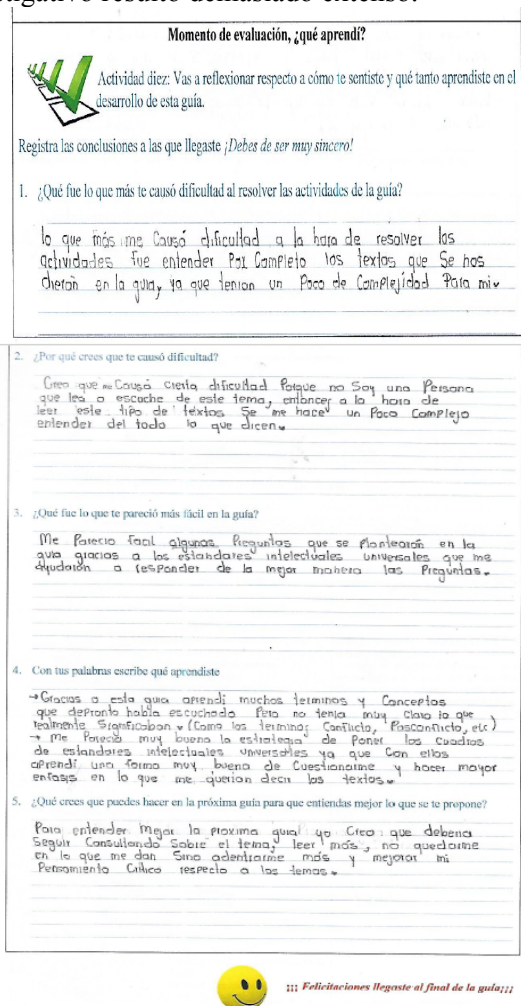 tigativo resultó demasiado extenso.
Momento de evaluación, ¿qué aprendí?
Actividad diez: Vas a reflexionar respecto a cómo te sentiste y qué tanto aprendiste en el
desarrollo de esta guía.
Registra las conclusiones a las que llegaste ¡Debes de ser muy sincero!
1. ¿Qué fue lo que más te causó dificultad al resolver las actividades de la guía?
lo que más me causó dificultad a la hora de resolver las
actividades fue entender por completo los textos que se nos
dieron en la guía, ya que tenían un poco de complejidad para mi.
2. ¿Por qué crees que te causó dificultad?
Creo que me causó cierta dificultad porque no soy una persona
que lea o escuche de este tema, entonces a la hora de
leer este tipo de textos se me hace un poco complejo
entender del todo lo que dicen.
3. ¿Qué fue lo que te pareció más fácil en la guía?
Me parecio facil algunas preguntas que se plantearón en la
guia gracias a los estandares intelectuales universales que me
ayudarón a responder de la mejor manera las preguntas.
4. Con tus palabras escribe qué aprendiste
→ Gracias a esta guia aprendi muchos terminos y conceptos
que depronto habia escuchado pero no tenia muy claro lo que
realmente significaban. (Como los terminos Conflicto, Posconflicto, etc)
→ Me pareció muy buena la estrategia de poner los cuadros
de estandares intelectuales universales ya que con ellos
aprendí una forma muy buena de cuestionarme y hacer mayor
enfasis en lo que me querian decir los textos.
5. ¿Qué crees que puedes hacer en la próxima guía para que entiendas mejor lo que se te propone?
Para entender mejor la proxima guia yo creo que deberia
seguir consultando sobre el tema, leer más, no quedarme
en lo que me dan sino adentrarme más y mejorar mi
pensamiento critico respecto a los temas.
¡¡¡ Felicitaciones llegaste al final de la guía¡¡¡